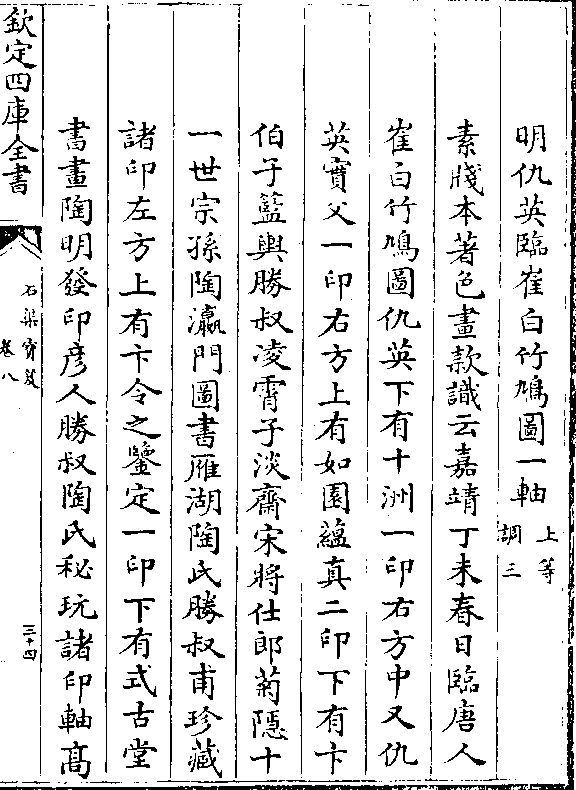 明仇英臨崔白竹鳩圖一軸上等調三
素牋本著色畫款識云嘉靖丁未春日臨唐人
崔白竹鳩圖仇英下有十洲一印右方中又仇
英實父一印右方上有如園蘊真二印下有卞
伯子籃輿勝叔凌霄子淡齋宋將仕郎菊隱十
一世宗孫陶瀛門圖書雁湖陶氏勝叔甫珍藏
諸印左方上有卞令之鑒定一印下有式古堂
書畫陶明發印彥人勝叔陶氏秘玩諸印軸髙
欽定四庫全書
石渠寶笈
卷八
三十四